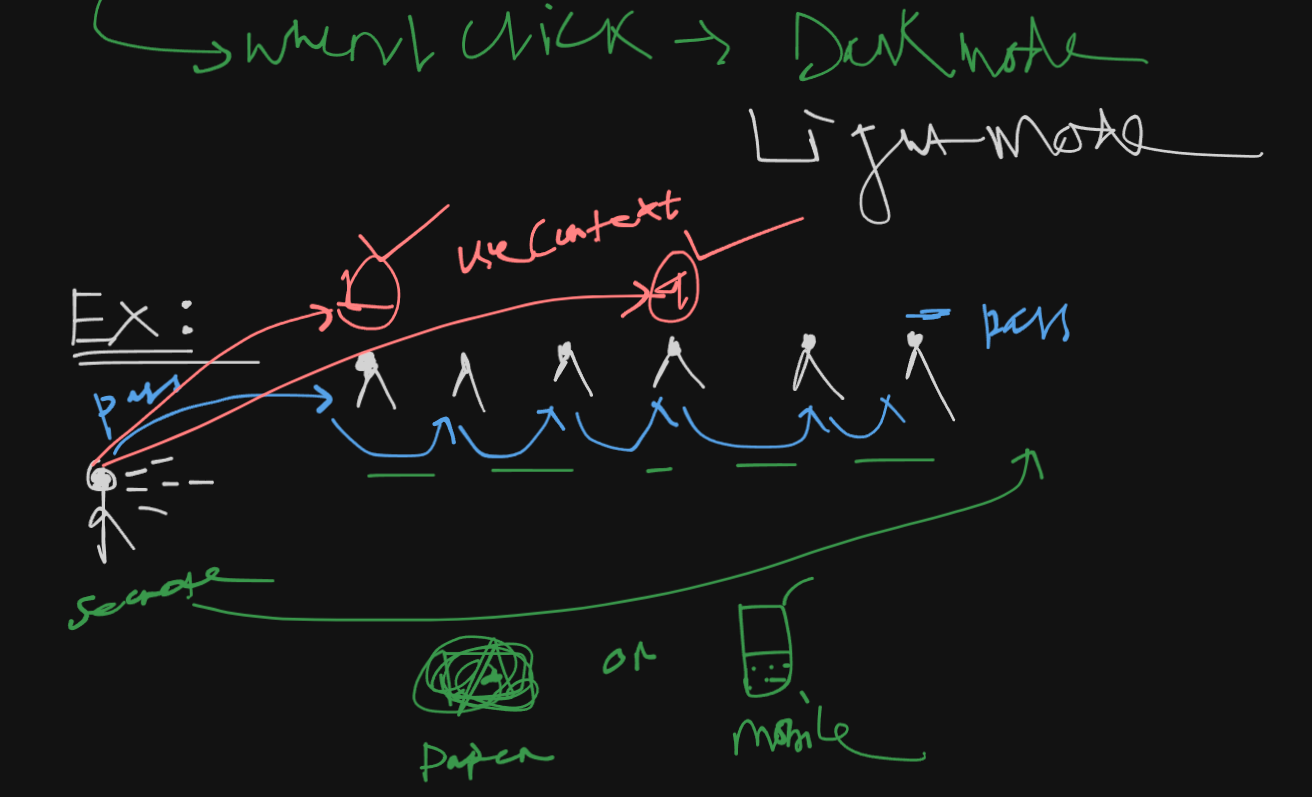 when click → Dark mode
Light mode
useContext
1
1
Ex:
= pass
pass
secrate
or
Paper
mobile